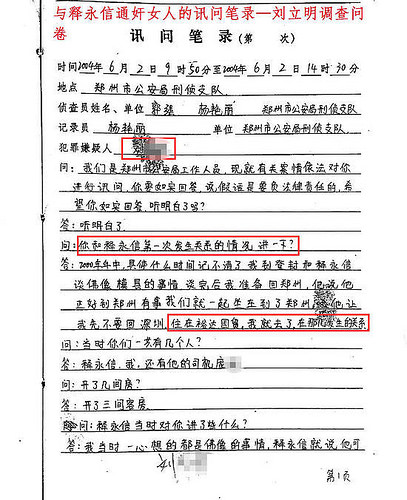 与释永信通奸女人的讯问笔录—刘立明调查问
卷
讯问笔录(第 次)
时间2004年6月2日9时50分至2004年6月2日14时30分
地点 郑州市公安局刑侦支队
侦查员姓名、单位 郭强 杨艳丽 郑州市公安局刑侦支队
记录员 杨艳丽 单位 郑州市公安局刑侦支队
犯罪嫌疑人
问:我们是郑州市公安局工作人员,现就有关案情依法对你
进行讯问,你要如实回答,说假话是要负法律责任的,希
望你如实回答,听明白了吗?
答:听明白了.
问:你和释永信第一次发生关系的情况讲一下?
答:2000年年中,具体什么时间记不清了我到登封和释永信
谈佛像模具的事情谈完后我准备回郑州,他说他
正好到郑州有事我们就一起坐车到了郑州 他让
我先不要回深圳,住在裕达国贸,我就去了,在那儿发生的关系
问:当时你们一共有几个人?
答:释永信.我,还有他的司机庞
问:开了几间房?
答:开了三间客房.
问:释永信当时对你讲了些什么?
答:我当时一心想的都是佛像的事情,释永信就说他可
刘
第1页